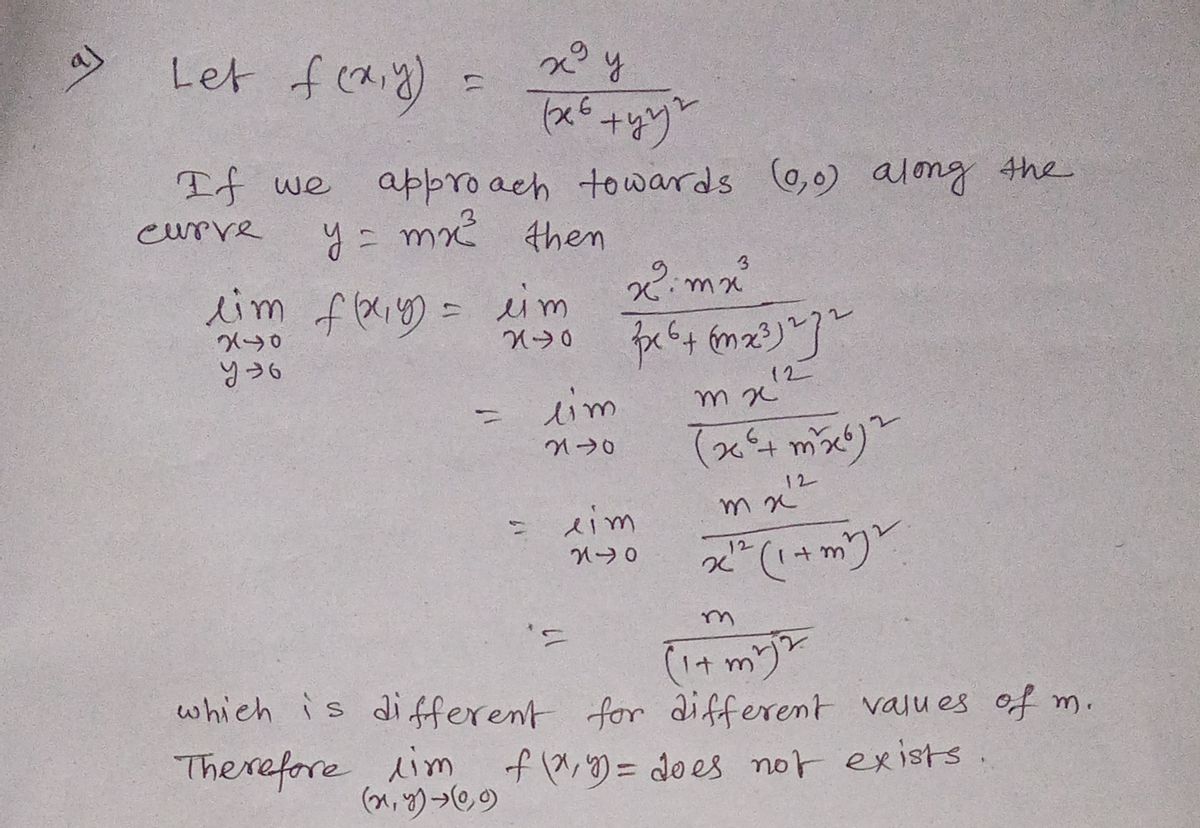 a) Let f(x,y) = x⁹y / (x⁶+y²)²
If we approach towards (0,0) along the
curve y = mx³ then
lim x→0 y→0 f(x,y) = lim x→0 x⁹·mx³ / {x⁶+(mx³)²}²
= lim x→0 mx¹² / (x⁶+m²x⁶)²
= lim x→0 mx¹² / x¹²(1+m²)²
= m / (1+m²)²
which is different for different values of m.
Therefore lim (x,y)→(0,0) f(x,y) = does not exists.